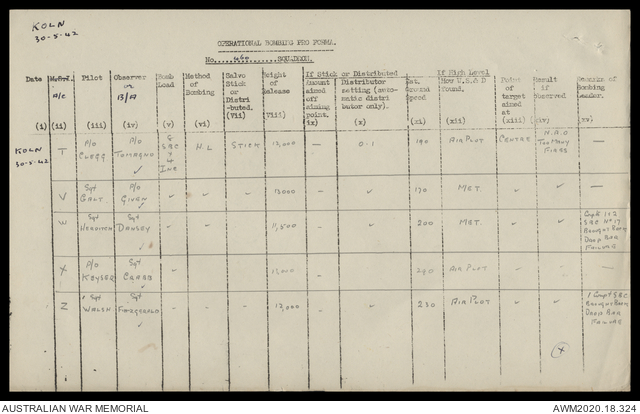 KOLN
30-5-42
OPERATIONAL BOMBING PRO FORMA.
No. 460 SQUADRON.
Date A/C Pilot Observer or B/A Bomb Load Method of Bombing Salvo Stick or Distri-buted. Height of Release If Stick or Distributed Amount aimed off aiming point. Distributor setting (auto-matic distri-butor only). Est. Ground Speed If High Level How W.S. & D found. Point of target aimed at Result if observed Remarks of Bombing Leader.
(i) (ii) (iii) (iv) (v) (vi) (vii) (viii) ix) (x) (xi) (xii) (xiii) (xiv) (xv)
KOLN 30-5-42 T P/O CLEGG P/O ✓ 8 SBC 4 INC H.L STICK 12,000 — 0-1 190 AIR PLOT CENTRE N.R.O TOO MANY FIRES —
V Sgt GALT P/O GIVEN ✓ 13000 — 170 MET. —
W Sgt Sgt DANSEY ✓ 11,500 — 200 MET. SBC No 17 DROP BAR FAILURE
X P/O KEYSER Sgt CRABB ✓ — AIR PLOT —
Z Sgt WALSH Sgt FITZGERALD ✓ 12,000 — 230 AIR PLOT 1 SBC DROP BAR FAILURE
AUSTRALIAN WAR MEMORIAL
AWM2020.18.324